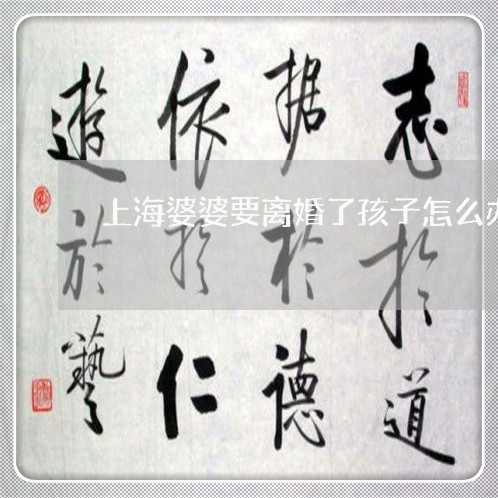 志於道
据於德
依於仁
遊於藝
上海婆婆要离婚了孩子怎么办